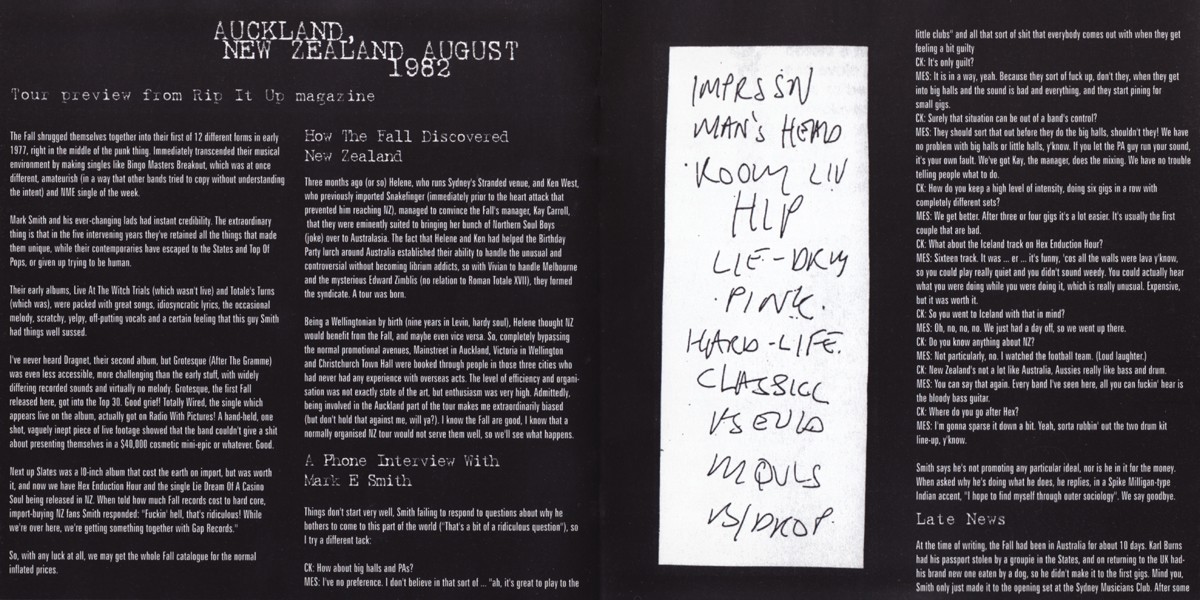 AUCKLAND,
NEW ZEALAND, AUGUST
1982
Tour preview from Rip It Up magazine
The Fall shrugged themselves together into their first of 12 different forms in early
1977, right in the middle of the punk thing. Immediately transcended their musical
environment by making singles like Bingo Masters Breakout, which was at once
different, amateurish (in a way that other bands tried to copy without understanding
the intent) and NME single of the week.
Mark Smith and his ever-changing lads had instant credibility. The extraordinary
thing is that in the five intervening years they've retained all the things that made
them unique, while their contemporaries have escaped to the States and Top Of
Pops, or given up trying to be human.
Their early albums, Live At The Witch Trials (which wasn't live) and Totale's Turns
(which was), were packed with great songs, idiosyncratic lyrics, the occasional
melody, scratchy, yelpy, off-putting vocals and a certain feeling that this guy Smith
had things well sussed.
I've never heard Dragnet, their second album, but Grotesque (After The Gramme)
was even less accessible, more challenging than the early stuff, with widely
differing recorded sounds and virtually no melody. Grotesque, the first Fall
released here, got into the Top 30. Good grief! Totally Wired, the single which
appears live on the album, actually got on Radio With Pictures! A hand-held, one
shot, vaguely inept piece of live footage showed that the band couldn't give a shit
about presenting themselves in a $40,000 cosmetic mini-epic or whatever. Good.
Next up Slates was a 10-inch album that cost the earth on import, but was worth
it, and now we have Hex Enduction Hour and the single Lie Dream Of A Casino
Soul being released in NZ. When told how much Fall records cost to hard core,
import-buying NZ fans Smith responded: "Fuckin' hell, that's ridiculous! While
we're over here, we're getting something together with Gap Records."
So, with any luck at all, we may get the whole Fall catalogue for the normal
inflated prices.
How The Fall Discovered
New Zealand
Three months ago (or so) Helene, who runs Sydney's Stranded venue, and Ken West,
who previously imported Snakefinger (immediately prior to the heart attack that
prevented him reaching NZ), managed to convince the Fall's manager, Kay Carroll,
that they were eminently suited to bringing her bunch of Northern Soul Boys
(joke) over to Australasia. The fact that Helene and Ken had helped the Birthday
Party lurch around Australia established their ability to handle the unusual and
controversial without becoming librium addicts, so with Vivian to handle Melbourne
and the mysterious Edward Zimblis (no relation to Roman Totale XVII), they formed
the syndicate. A tour was born.
Being a Wellingtonian by birth (nine years in Levin, hardy soul), Helene thought NZ
would benefit from the Fall, and maybe even vice versa. So, completely bypassing
the normal promotional avenues, Mainstreet in Auckland, Victoria in Wellington
and Christchurch Town Hall were booked through people in those three cities who
had never had any experience with overseas acts. The level of efficiency and organi-
sation was not exactly state of the art, but enthusiasm was very high. Admittedly,
being involved in the Auckland part of the tour makes me extraordinarily biased
(but don't hold that against me, will ya?). I know the Fall are good, I know that a
normally organised NZ tour would not serve them well, so we'll see what happens.
A Phone Interview With
Mark E Smith
Things don't start very well, Smith failing to respond to questions about why he
bothers to come to this part of the world ("That's a bit of a ridiculous question"), so
I try a different tack:
CK: How about big halls and PAs?
MES: I've no preference. I don't believe in that sort of ... "ah, it's great to play to the
IMPRSSN
MAN'S HEAD
ROOM LIV
HIP
LIE-DRM
PINK
HARD-LIFE.
CLASSICL
PSEUD
MOULS
B/DROP.
little clubs" and all that sort of shit that everybody comes out with when they get
feeling a bit guilty
CK: It's only guilt?
MES: It is in a way, yeah. Because they sort of fuck up, don't they, when they get
into big halls and the sound is bad and everything, and they start pining for
small gigs.
CK: Surely that situation can be out of a band's control?
MES: They should sort that out before they do the big halls, shouldn't they! We have
no problem with big halls or little halls, y'know. If you let the PA guy run your sound,
it's your own fault. We've got Kay, the manager, does the mixing. We have no trouble
telling people what to do.
CK: How do you keep a high level of intensity, doing six gigs in a row with
completely different sets?
MES: We get better. After three or four gigs it's a lot easier. It's usually the first
couple that are bad.
CK: What about the Iceland track on Hex Enduction Hour?
MES: Sixteen track. It was ... er ... it's funny, 'cos all the walls were lava y'know,
so you could play really quiet and you didn't sound weedy. You could actually hear
what you were doing while you were doing it, which is really unusual. Expensive,
but it was worth it.
CK: So you went to Iceland with that in mind?
MES: Oh, no, no, no. We just had a day off, so we went up there.
CK: Do you know anything about NZ?
MES: Not particularly, no. I watched the football team. (Loud laughter.)
CK: New Zealand's not a lot like Australia, Aussies really like bass and drum.
MES: You can say that again. Every band I've seen here, all you can fuckin' hear is
the bloody bass guitar.
CK: Where do you go after Hex?
MES: I'm gonna sparse it down a bit. Yeah, sorta rubbin' out the two drum kit
line-up, y'know.
Smith says he's not promoting any particular ideal, nor is he in it for the money.
When asked why he's doing what he does, he replies, in a Spike Milligan-type
Indian accent, "I hope to find myself through outer sociology". We say goodbye.
Late News
At the time of writing, the Fall had been in Australia for about 10 days. Karl Burns
had his passport stolen by a groupie in the States, and on returning to the UK had-
his brand new one eaten by a dog, so he didn't make it to the first gigs. Mind you,
Smith only just made it to the opening set at the Sydney Musicians Club. After some